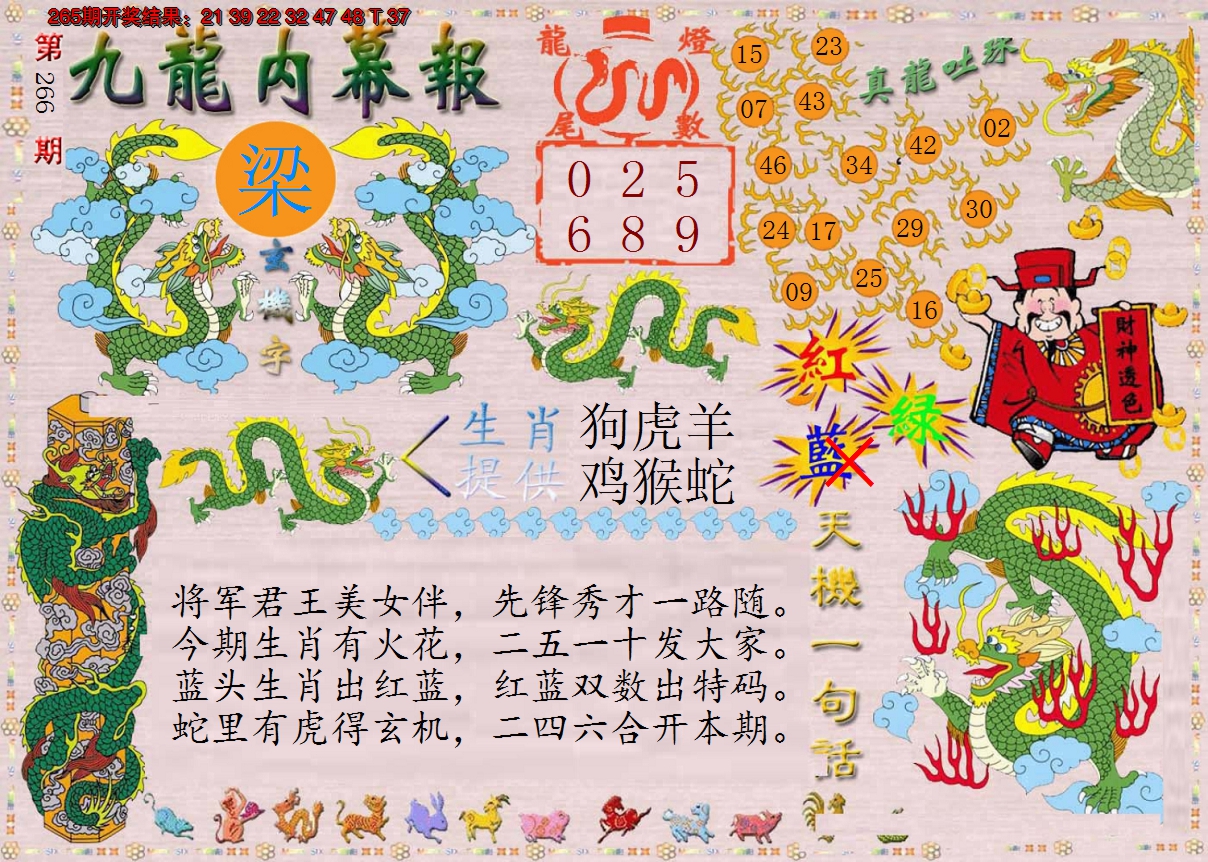 265期开奖结果：21 39 22 32 47 48 T 37
第266期
九龍内幕報
梁
玄機字
龍燈
尾數
0 2 5
6 8 9
真龍吐珠
15 23
07 43
46 34 42 02
24 17 29 30
09 25 16
財神透色
紅
綠
藍
生肖 狗虎羊
提供 鸡猴蛇
天機一句話
将军君王美女伴，先锋秀才一路随。
今期生肖有火花，二五一十发大家。
蓝头生肖出红蓝，红蓝双数出特码。
蛇里有虎得玄机，二四六合开本期。